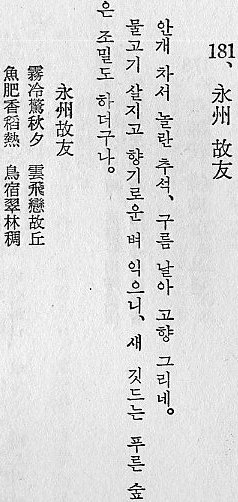 181、永州 故友
안개 차서 놀란 추석, 구름 날아 고향 그리네。
물고기 살지고 향기로운 벼 익으니, 새 깃드는 푸른 숲
은 조밀도 하더구나。
永州 故友
霧冷驚秋夕 雲飛戀故丘
魚肥香稻熱 鳥宿翠林稠